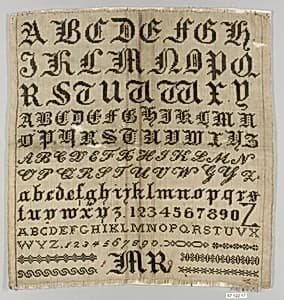 A B C D E F G H
I K L M N O P Q
R S T U W X Y
A B C D E F G H I K L M N
O P Q R S T U V W X Y Z
A B C D E F G H I K L M N
O P Q R S T U V W X Y Z.
a b c d e f g h i j k l m n o p q r s
t u v w x y z. 1 2 3 4 5 6 7 8 9 0 Z
A B C D E F G H I K L M N O P Q R S T U V X
W Y Z. 1 2 3 4 5 6 7 8 9 0.
M R
57.122.17